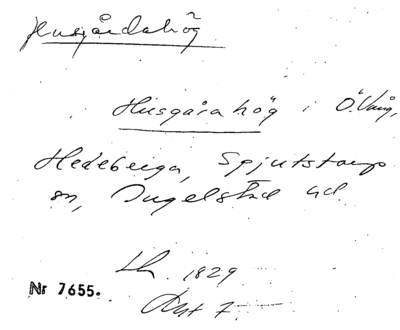 Husgårdahög
Husgåra hög i Ö. Vång,
Hedeberga, Spjutstorp
sn, Ingelstad hd.
Lh 1829
Nr 7655.
Akt 7